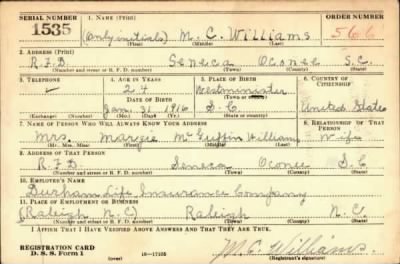 SERIAL NUMBER 1. NAME (Print) ORDER NUMBER
1535 (Only initials) M. C. Williams 566
(First) (Middle) (Last)
2. ADDRESS (Print)
R.F.D. Seneca Oconee S.C.
(Number and street or R. F. D. number) (Town) (County) (State)
3. TELEPHONE 4. AGE IN YEARS 5. PLACE OF BIRTH 6. COUNTRY OF CITIZENSHIP
24 Westminster
DATE OF BIRTH (Town or county)
Jan. 31 1916 S.C United States
(Exchange) (Number) (Mo.) (Day) (Yr.) (State or country)
7. NAME OF PERSON WHO WILL ALWAYS KNOW YOUR ADDRESS 8. RELATIONSHIP OF THAT PERSON
Mrs. Margie McGuffin Williams Wife
(Mr., Mrs., Miss) (First) (Middle) (Last)
9. ADDRESS OF THAT PERSON
R.F.D. Seneca Oconee S.C
(Number and street or R. F. D. number) (Town) (County) (State)
10. EMPLOYER'S NAME
Durham Life Insurance Company
11. PLACE OF EMPLOYMENT OR BUSINESS
(Raleigh N.C) Raleigh N.C.
(Number and street or R. F. D. number) (Town) (County) (State)
I AFFIRM THAT I HAVE VERIFIED ABOVE ANSWERS AND THAT THEY ARE TRUE.
REGISTRATION CARD
D. S. S. Form 1 (over) 16-17105 M.C. Williams.
(Registrant's signature)